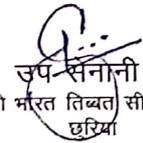 उप सेनानी
भारत तिब्बत सी
छुरिया